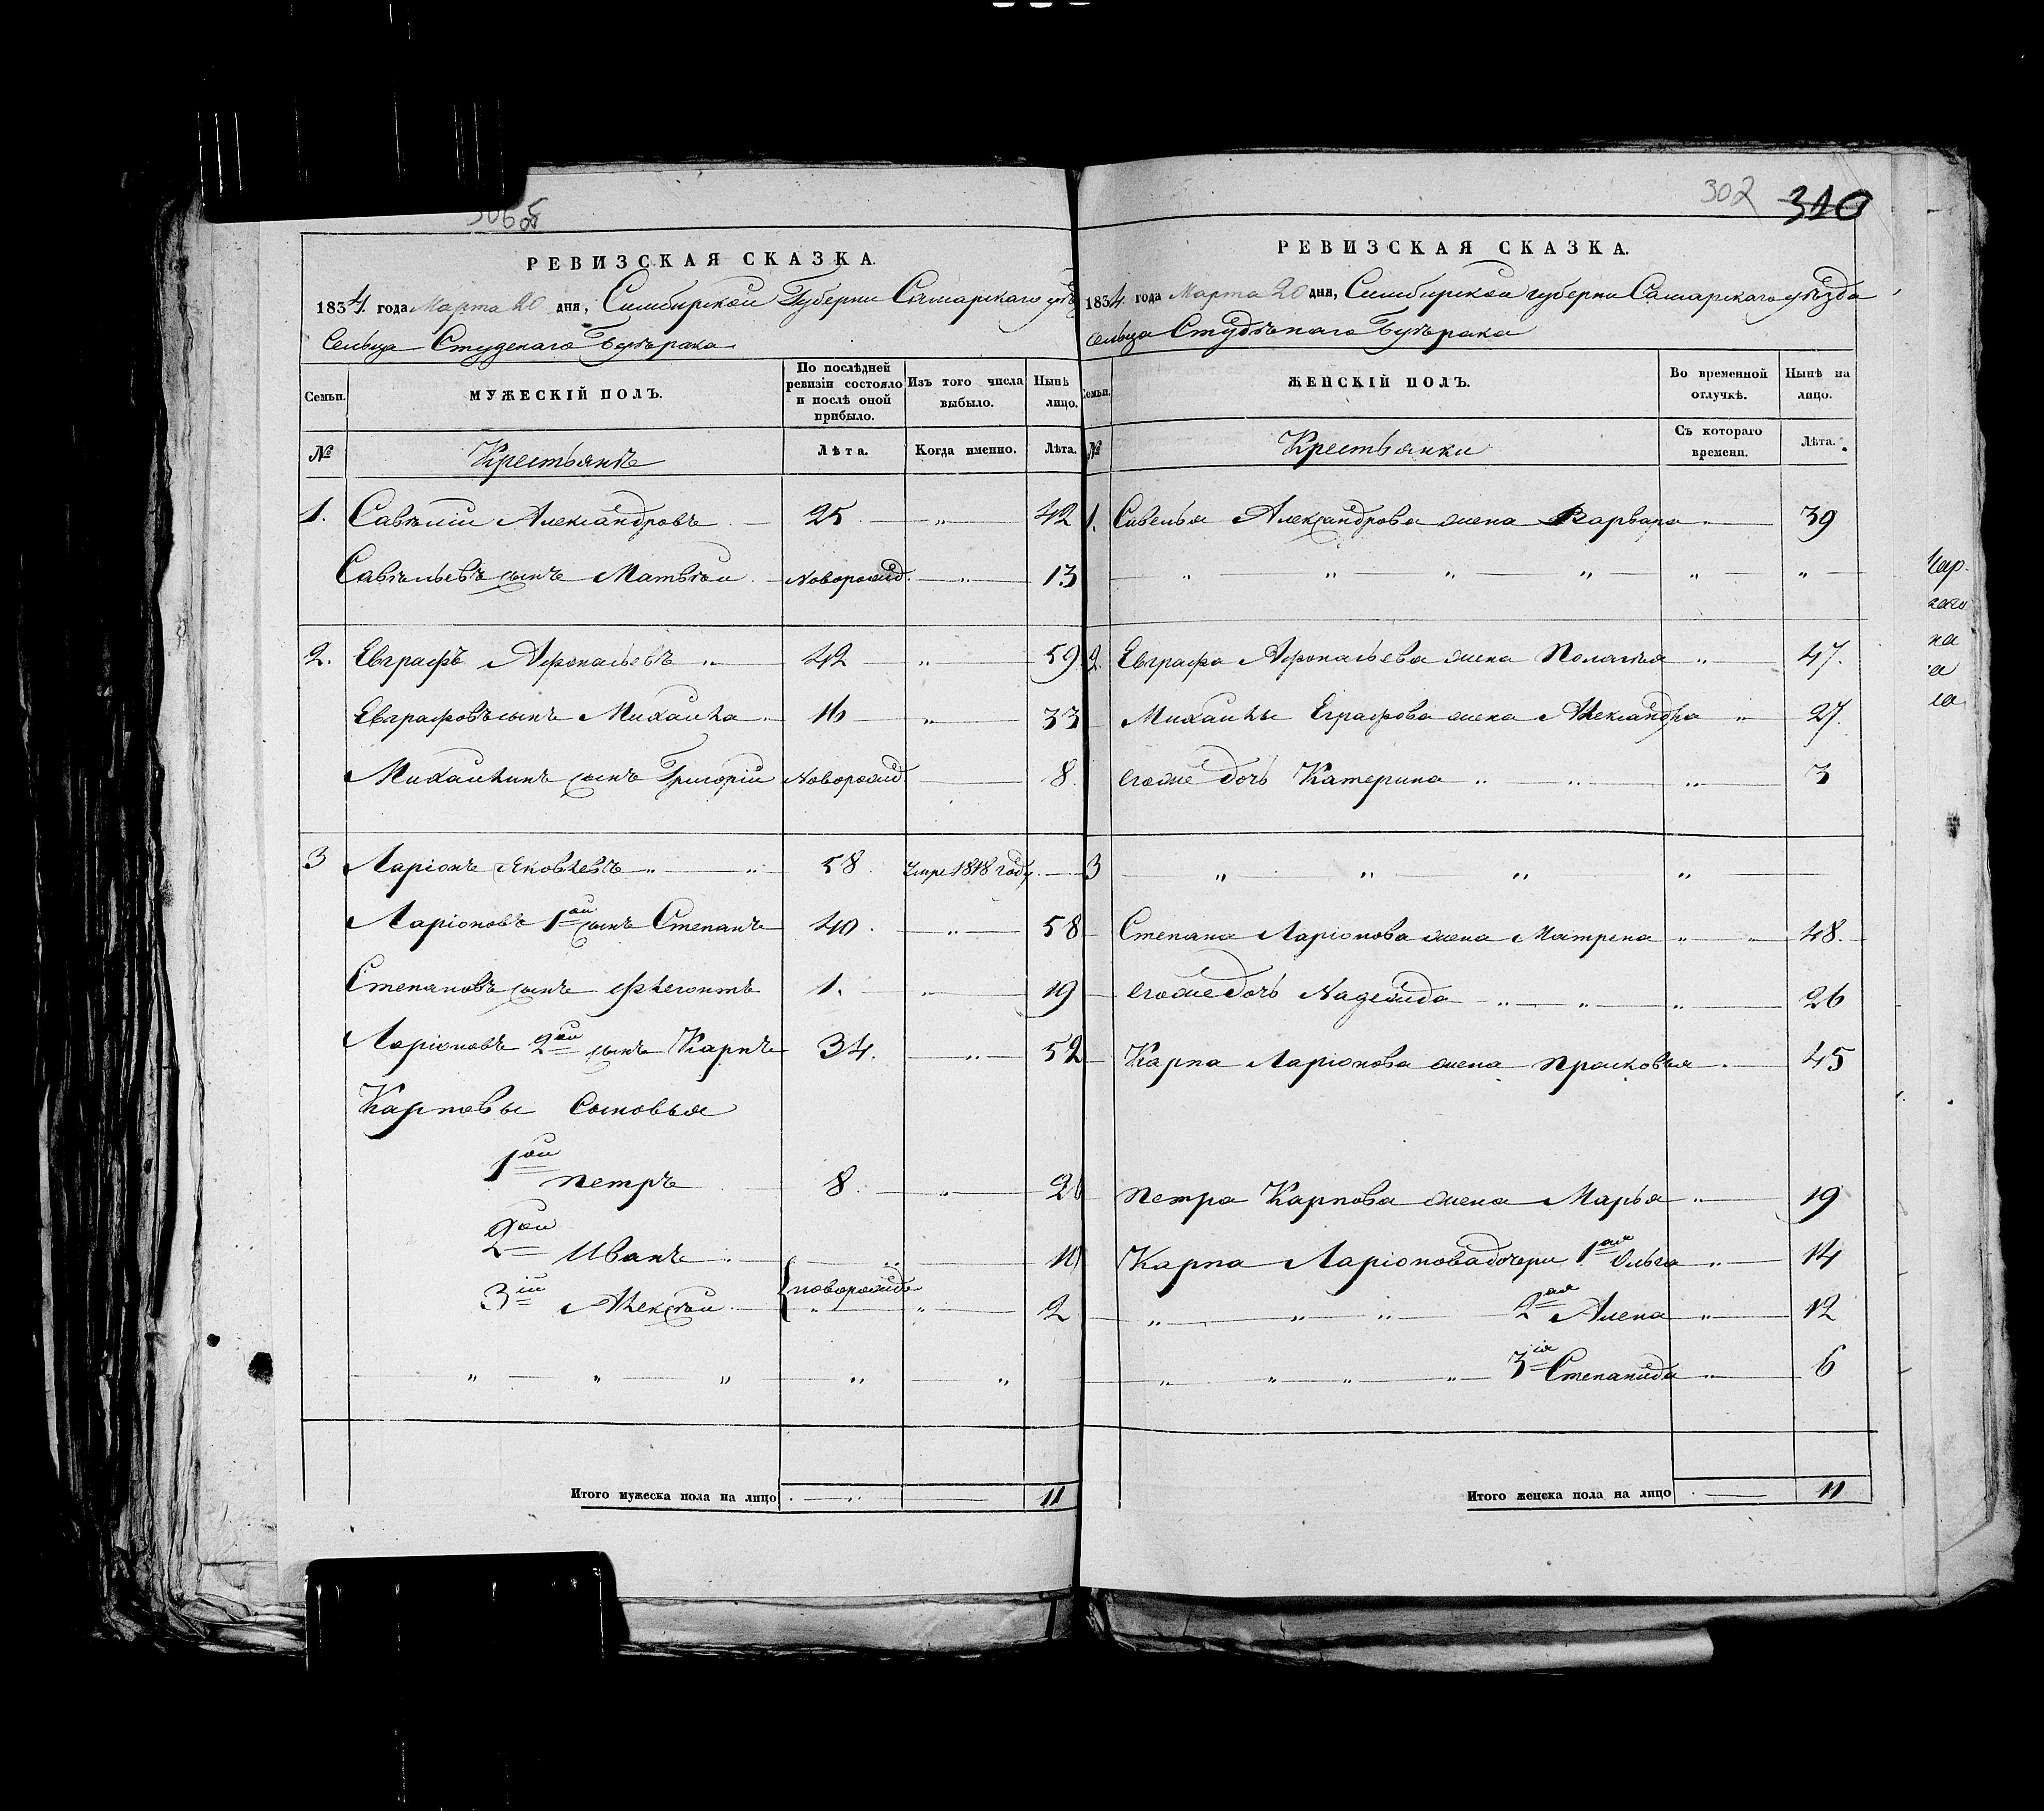 302 310
РЕВИЗСКАЯ СКАЗКА.
1834 года Марта 20 дня, Симбирской Губерни Самарскаго уѣз
Сельца Студенаго Буерака
Семьи.
МУЖЕСКІЙ ПОЛЪ.
По послѣдней ревизіи состояло и послѣ оной прибыло.
Изъ того числа выбыло.
Нынѣ лицо.
№
Крестьянѣ
Лѣта.
Когда именно.
Лѣта.
1. Савѣлій Александровъ 25 „ 42
Савѣльевъ сынъ Матвѣй Новорожд. „ 13
2. Евграфъ Афонасьевъ „ 42 „ 59
Евграфовъ сынъ Михайла 16 „ 33
Михайлинъ сынъ Григорій Новорожд 8
3 Ларіонъ Яковлевъ „ „ 58 умре 1818 году
Ларіоновъ 1ой сынъ Степанъ 40 „ 58
Степановъ сынъ Флегонтъ 1. „ 19
Ларіоновъ 2ой сынъ Карпъ 34. „ 52
Карповы Сыновья
1ой Петръ 8. „ 26
2ой Иванъ „
3ій Алексѣй новорожд „ „ 2
„ „ „ „ „
Итого мужеска пола на лицо „ 11
РЕВИЗСКАЯ СКАЗКА.
1834 года Марта 20 дня, Симбирской губерни Самарскаго уѣзда
сельца Студѣнаго Буерака
Семьи.
ЖЕНСКІЙ ПОЛЪ.
Во временной отлучкѣ.
Нынѣ на лицо.
№
Крестьянки
Съ котораго времени.
Лѣта.
1. Савелья Александрова жена Варвара „ 39
„ „ „ „ „ „
2. Евграфа Афонасьева жена Полагѣя „ 47.
Михайлы Еграфова жена Александра „ 27.
егоже дочь Катерина „ „ „ 3
3 „ „ „ „
Степана Ларіонова жена Матрена „ „ 48.
егоже дочь Надежда „ „ „ 26
Карпа Ларіонова жена Прасковья 45
Петра Карпова жена Марья „ 19
Карпа Ларіонова дочери 1ая Ольга „ 14
„ „ „ 2ая Алена „ 12
„ „ „ „ 3ія Степанида „ 6
Итого женска пола на лицо 11